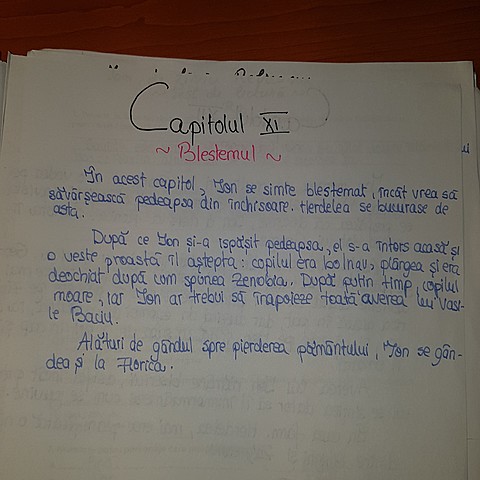 Capitolul XI
~ Blestemul ~
În acest capitol, Ion se simte blestemat, încât vrea să
săvârșească pedeapsa din închisoare. Herdelea se bucurase de
asta.
După ce Ion și-a ispășit pedeapsa, el s-a întors acasă și
o veste proastă îl aștepta: copilul era bolnav, plângea și era
deochiat după cum spunea Zenobia. După puțin timp, copilul
moare, iar Ion ar trebui să înapoieze toată averea lui Vasi-
le Baciu.
Alături de gândul spre pierderea pământului, Ion se gân-
dea și la Florica.